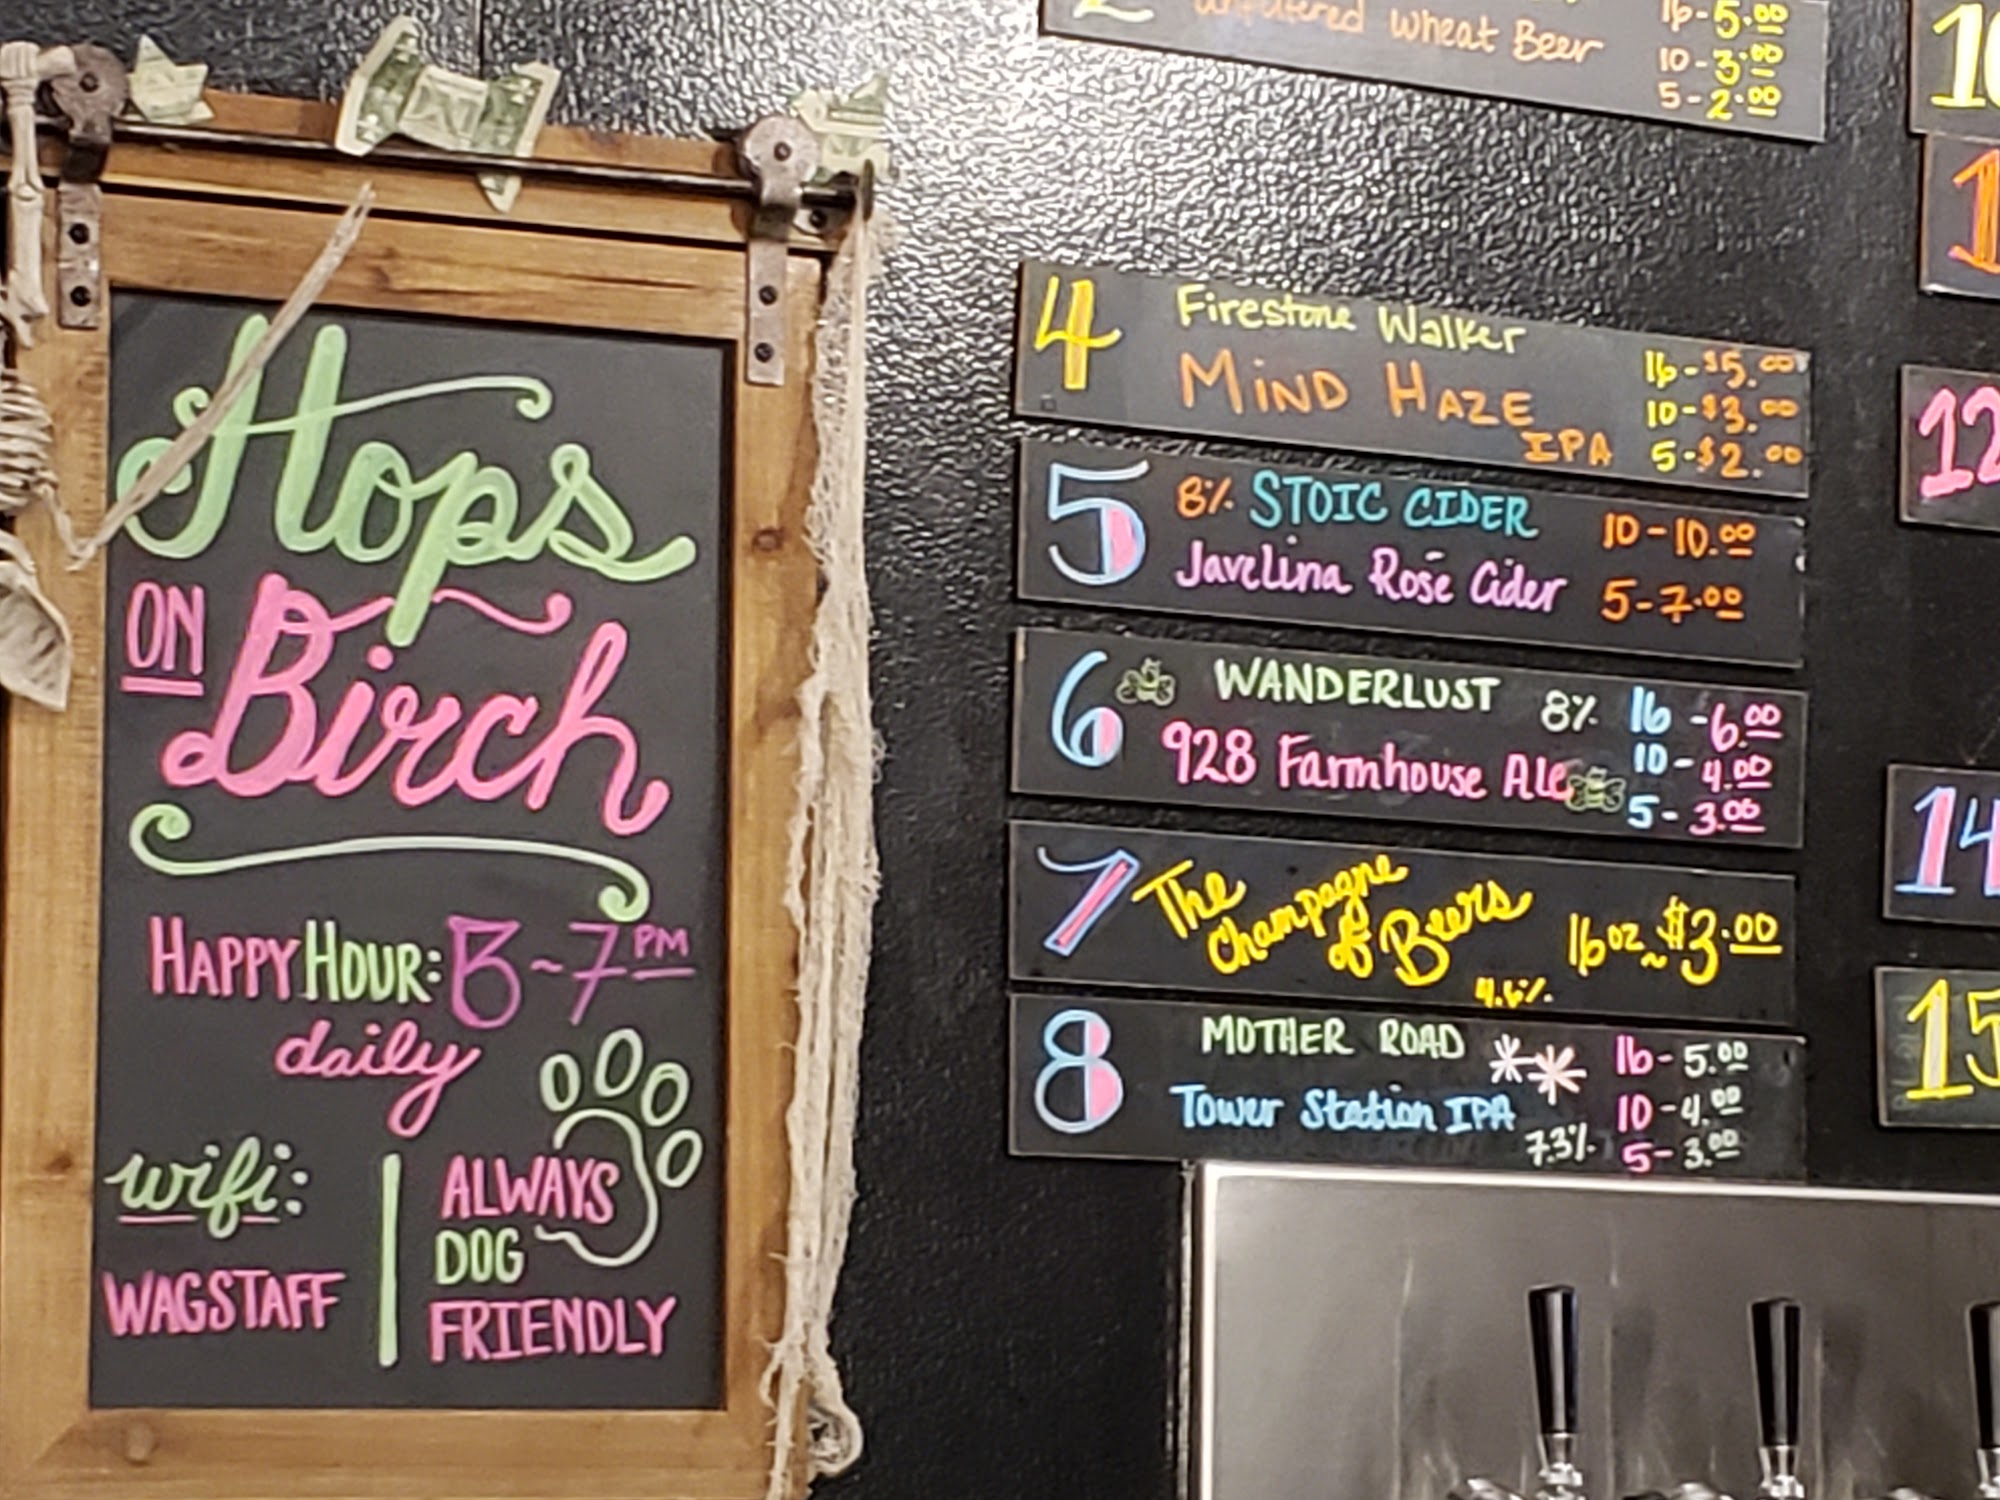 Hops
ON
Birch
HAPPY HOUR: 3~7 PM
daily
wifi:
WAGSTAFF
ALWAYS
DOG
FRIENDLY
2
unfiltered Wheat Beer
16-5.00
10-3.00
5-2.00
4
Firestone Walker
MIND HAZE
IPA
16-$5.00
10-$3.00
5-$2.00
5
8% STOIC CIDER
Javelina Rosé Cider
10-10.00
5-7.00
6
WANDERLUST 8%
928 Farmhouse Ale
16-6.00
10-4.00
5-3.00
7
The
Champagne
of Beers
4.6%
16oz~$3.00
8
MOTHER ROAD
Tower Station IPA
7.3%
16-5.00
10-4.00
5-3.00
12
14
15